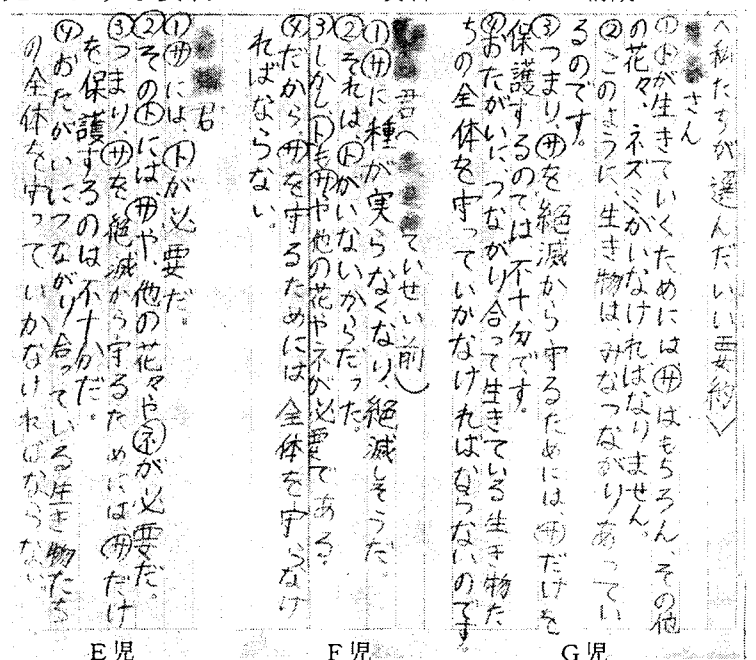 〈私たちが選んだいい要約〉
さん
①トが生きていくためにはサはもちろん、その他
の花々、ネズミがいなければなりません。
②このように、生き物は、みなつながりあってい
るのです。
③つまり、サを絶滅から守るためには、サだけを
保護するのでは不十分です。
④おたがいに、つながり合って生きている生き物た
ちの全体を守っていかなければならないのです。
君へ ていせい前)
①サに種が実らなくなり、絶滅しそうだ。
②それは、トがいないからだった。
③しかし、トもサや他の花やネが必要である。
④だから、サを守るためには全体を守らなけ
ればならない。
君
①サには、トが必要だ。
②そのトにはサや、他の花々やネが必要だ。
③つまり、サを絶滅から守るためにはサだけ
を保護するのは不十分だ。
④おたがいにつながり合っている生き物たち
の全体を守っていかなければならない。
E児
F児
G児